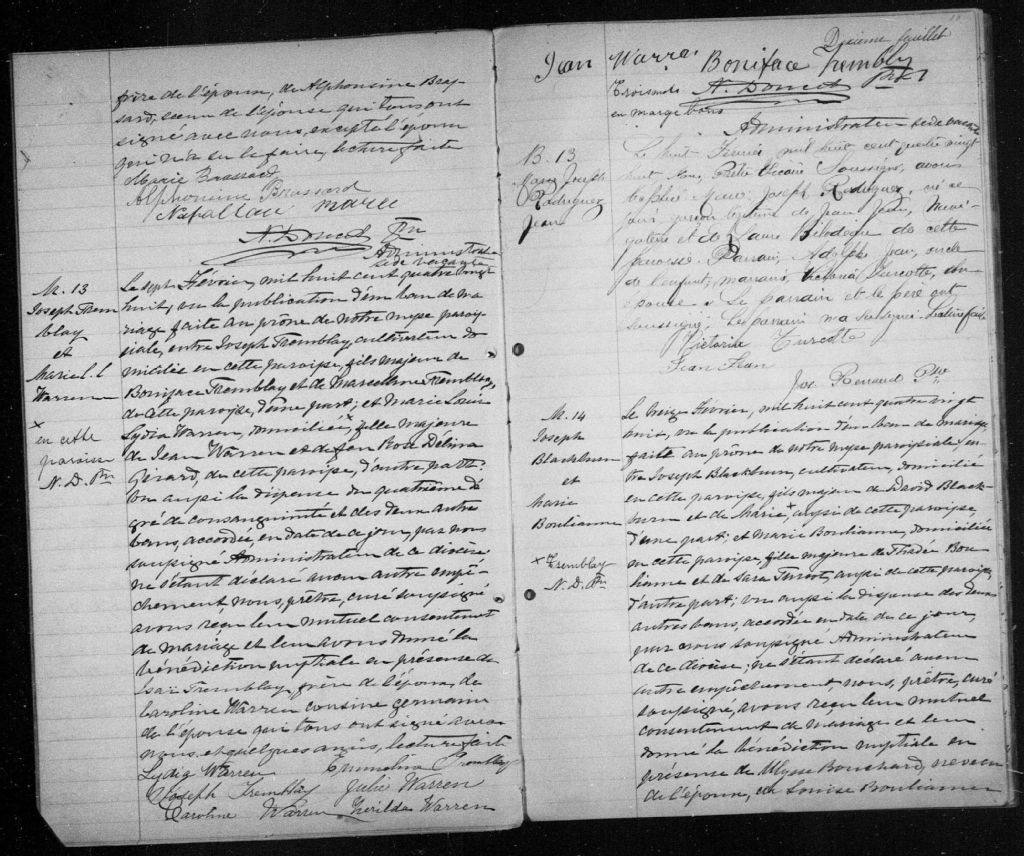 frère de l'époux, de Alphonsine Bras-
sard, sœur de l'épouse qui tous ont
signé avec nous, excepté l'époux
qui n'a su le faire, lecture faite
Marie Brassard
Alphonsine Brassard
Napoléon
N. Doucet Ptre
Administrateur
Sede vacante
M. 13
Joseph Trem
blay
et
Marie L. L
Warren
× en cette
paroisse
N. D. Ptre
Le sept Février, mil huit cent quatre vingt
huit, vu la publication d'un ban de ma-
riage faite au prône de notre messe parois-
siale, entre Joseph Tremblay, cultivateur do
micilié en cette paroisse, fils majeur de
Boniface Tremblay et de Marcelline Tremblay,
de cette paroisse, d'une part; et Marie Louise
Lydia Warren, domiciliée × fille majeure
de Jean Warren et de feu Delima
Gérard, de cette paroisse, d'autre part:
Vu aussi la dispense du quatrième de
gré de consanguinité et des deux autres
bans, accordée, en date de ce jour, par nous
soussigné Administrateur de ce diocèse
ne s'étant déclaré aucun autre empê-
chement nous, prêtre, curé soussigné
avons reçu leur mutuel consentement
de mariage et leur avons donné la
bénédiction nuptiale en présence de
Isaïe Tremblay, frère de l'époux, de
Caroline Warren cousine germaine
de l'épouse qui tous ont signé avec
nous, et quelques amis, lecture faite
Lydia Warren Tremblay
Joseph Tremblay Julie Warren
Caroline Warren Zerilda Warren
Dixième feuillet
Jean Warren Boniface Tremblay
Trois mots N. Doucet Ptre
en marge bons
Administrateur sede vacante
B. 13
Marie Joseph
Rodrigues
Jean
Le huit Février mil huit cent quatre vingt
huit Nous, Prêtre Vicaire Soussigné, avons
baptisé Marie Joseph Rodrigues, né ce
jour, de Jean Jean, Navi-
gateur et de Laure Bilodeau de cette
paroisse. Parrain, Adolphe Jean, oncle
de l'enfant; marraine, Victoria Turcotte, son
épouse. Le parrain et le père ont
soussigné. Lecture faite
Victorite Turcotte
Jean Jean
Jos. Renaud Ptre
M. 14
Joseph
Blackburn
et
Marie
Boulianne
× Tremblay
N. D. Ptre
Le treize Février, mil huit cent quatre vingt
huit, vu la publication d'un ban de mariage
faite au prône de notre messe paroissiale en-
tre Joseph Blackburn, cultivateur, domicilié
en cette paroisse, fils majeur de David Black-
burn et de Marie ×, aussi de cette paroisse,
d'une part; et Marie Boulianne, domiciliée
en cette paroisse, fille majeure de Thadée Bou-
lianne et de Sara Turcot, aussi de cette paroisse,
d'autre part; vu aussi la dispense des deux
autres bans, accordée en date de ce jour,
par nous soussigné Administrateur
de ce diocèse; ne s'étant déclaré aucun
autre empêchement, nous, prêtre, curé
soussigné, avons reçu leur mutuel
consentement de mariage et leur
donné la bénédiction nuptiale en
présence de Ulysse Bouchard, neveu
de l'époux, de Louise Boulianne